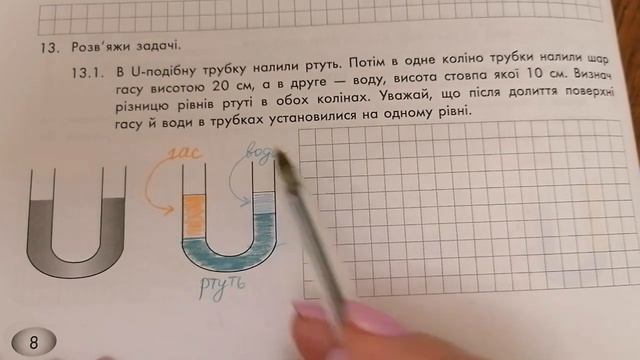 13. Розв'яжи задачі.
13.1. В U-подібну трубку налили ртуть. Потім в одне коліно трубки налили шар
гасу висотою 20 см, а в друге — воду, висота стовпа якої 10 см. Визнач
різницю рівнів ртуті в обох колінах. Уважай, що після долиття поверхні
гасу й води в трубках установилися на одному рівні.
гас
ртуть
8